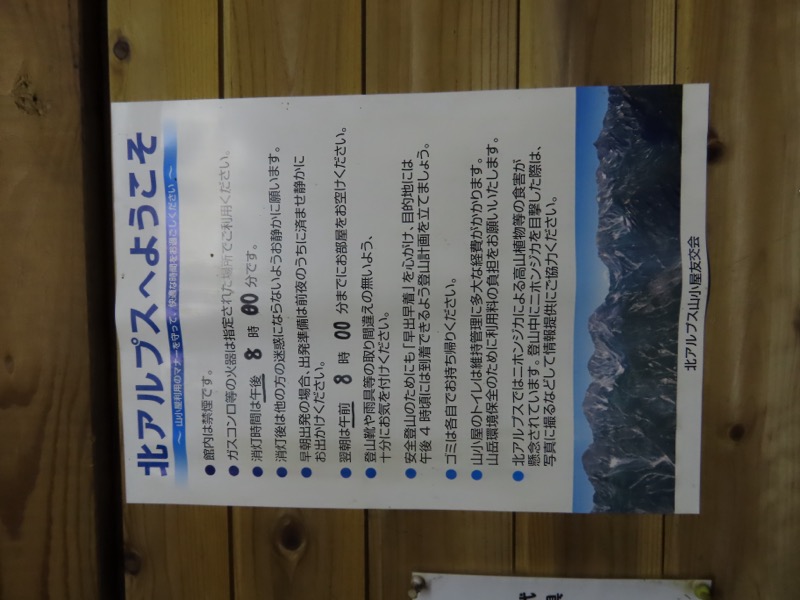 北アルプスへようこそ
～ 山小屋利用のマナーを守って、快適な時間をお過ごしください ～
● 館内は禁煙です。
● ガスコンロ等の火器は指定された場所でご利用ください。
● 消灯時間は午後 8 時 00 分です。
● 消灯後は他の方の迷惑にならないようお静かに願います。
● 早朝出発の場合、出発準備は前夜のうちに済ませ静かに
お出かけください。
● 翌朝は午前 8 時 00 分までにお部屋をお空けください。
● 登山靴や雨具等の取り間違えの無いよう、
十分にお気を付けください。
● 安全登山のためにも「早出早着」を心がけ、目的地には
午後 4 時頃には到着できるよう登山計画を立てましょう。
● ゴミは各自でお持ち帰りください。
● 山小屋のトイレは維持管理に多大な経費がかかります。
山岳環境保全のために利用料の負担をお願いいたします。
● 北アルプスではニホンジカによる高山植物等の食害が
懸念されています。登山中にニホンジカを目撃した際は、
写真に撮るなどして情報提供にご協力ください。
北アルプス山小屋友交会